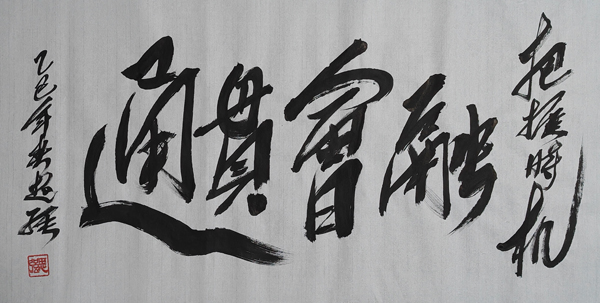 把握時机
融會貫通
乙巳年